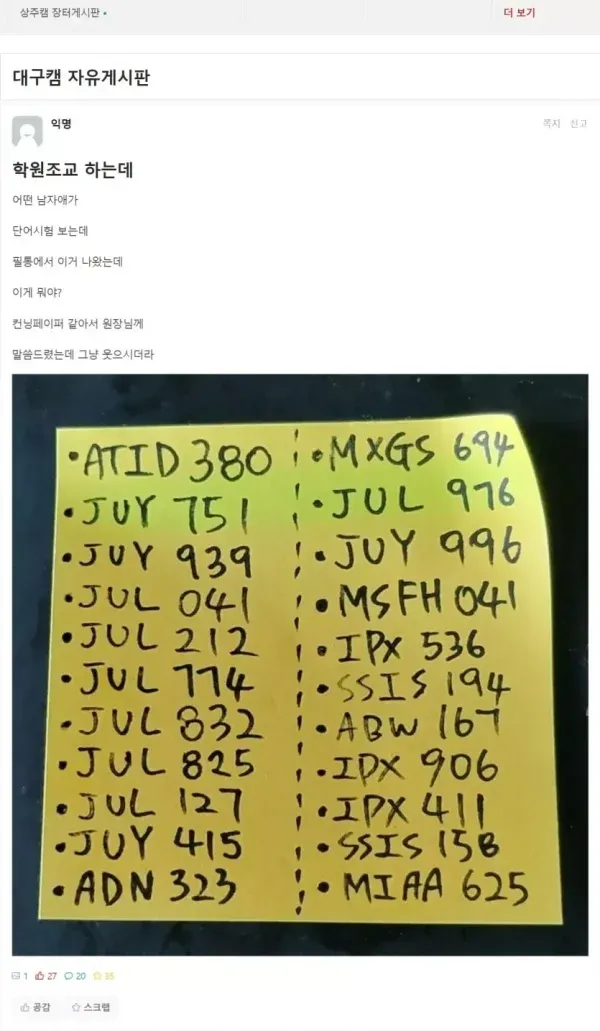 상주캠 장터게시판
더 보기
대구캠 자유게시판
익명
쪽지 신고
학원조교 하는데
어떤 남자애가
단어시험 보는데
필통에서 이거 나왔는데
이게 뭐야?
컨닝페이퍼 같아서 원장님께
말씀드렸는데 그냥 웃으시더라
• ATID 380
• JUY 751
• JUY 939
• JUL 041
• JUL 212
• JUL 774
• JUL 832
• JUL 825
• JUL 127
• JUY 415
• ADN 323
• MXGS 694
• JUL 976
• JUY 996
• MSFH 041
• IPX 536
• SSIS 194
• ABW 167
• IPX 906
• IPX 411
• SSIS 158
• MIAA 625
1 27 20 35
공감 스크랩